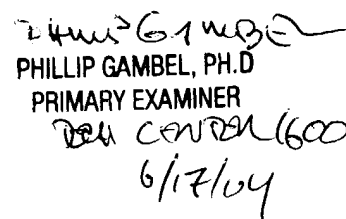 PHILLIP GAMBEL
PHILLIP GAMBEL, PH.D
PRIMARY EXAMINER
TECH CENTER 1600
6/17/04